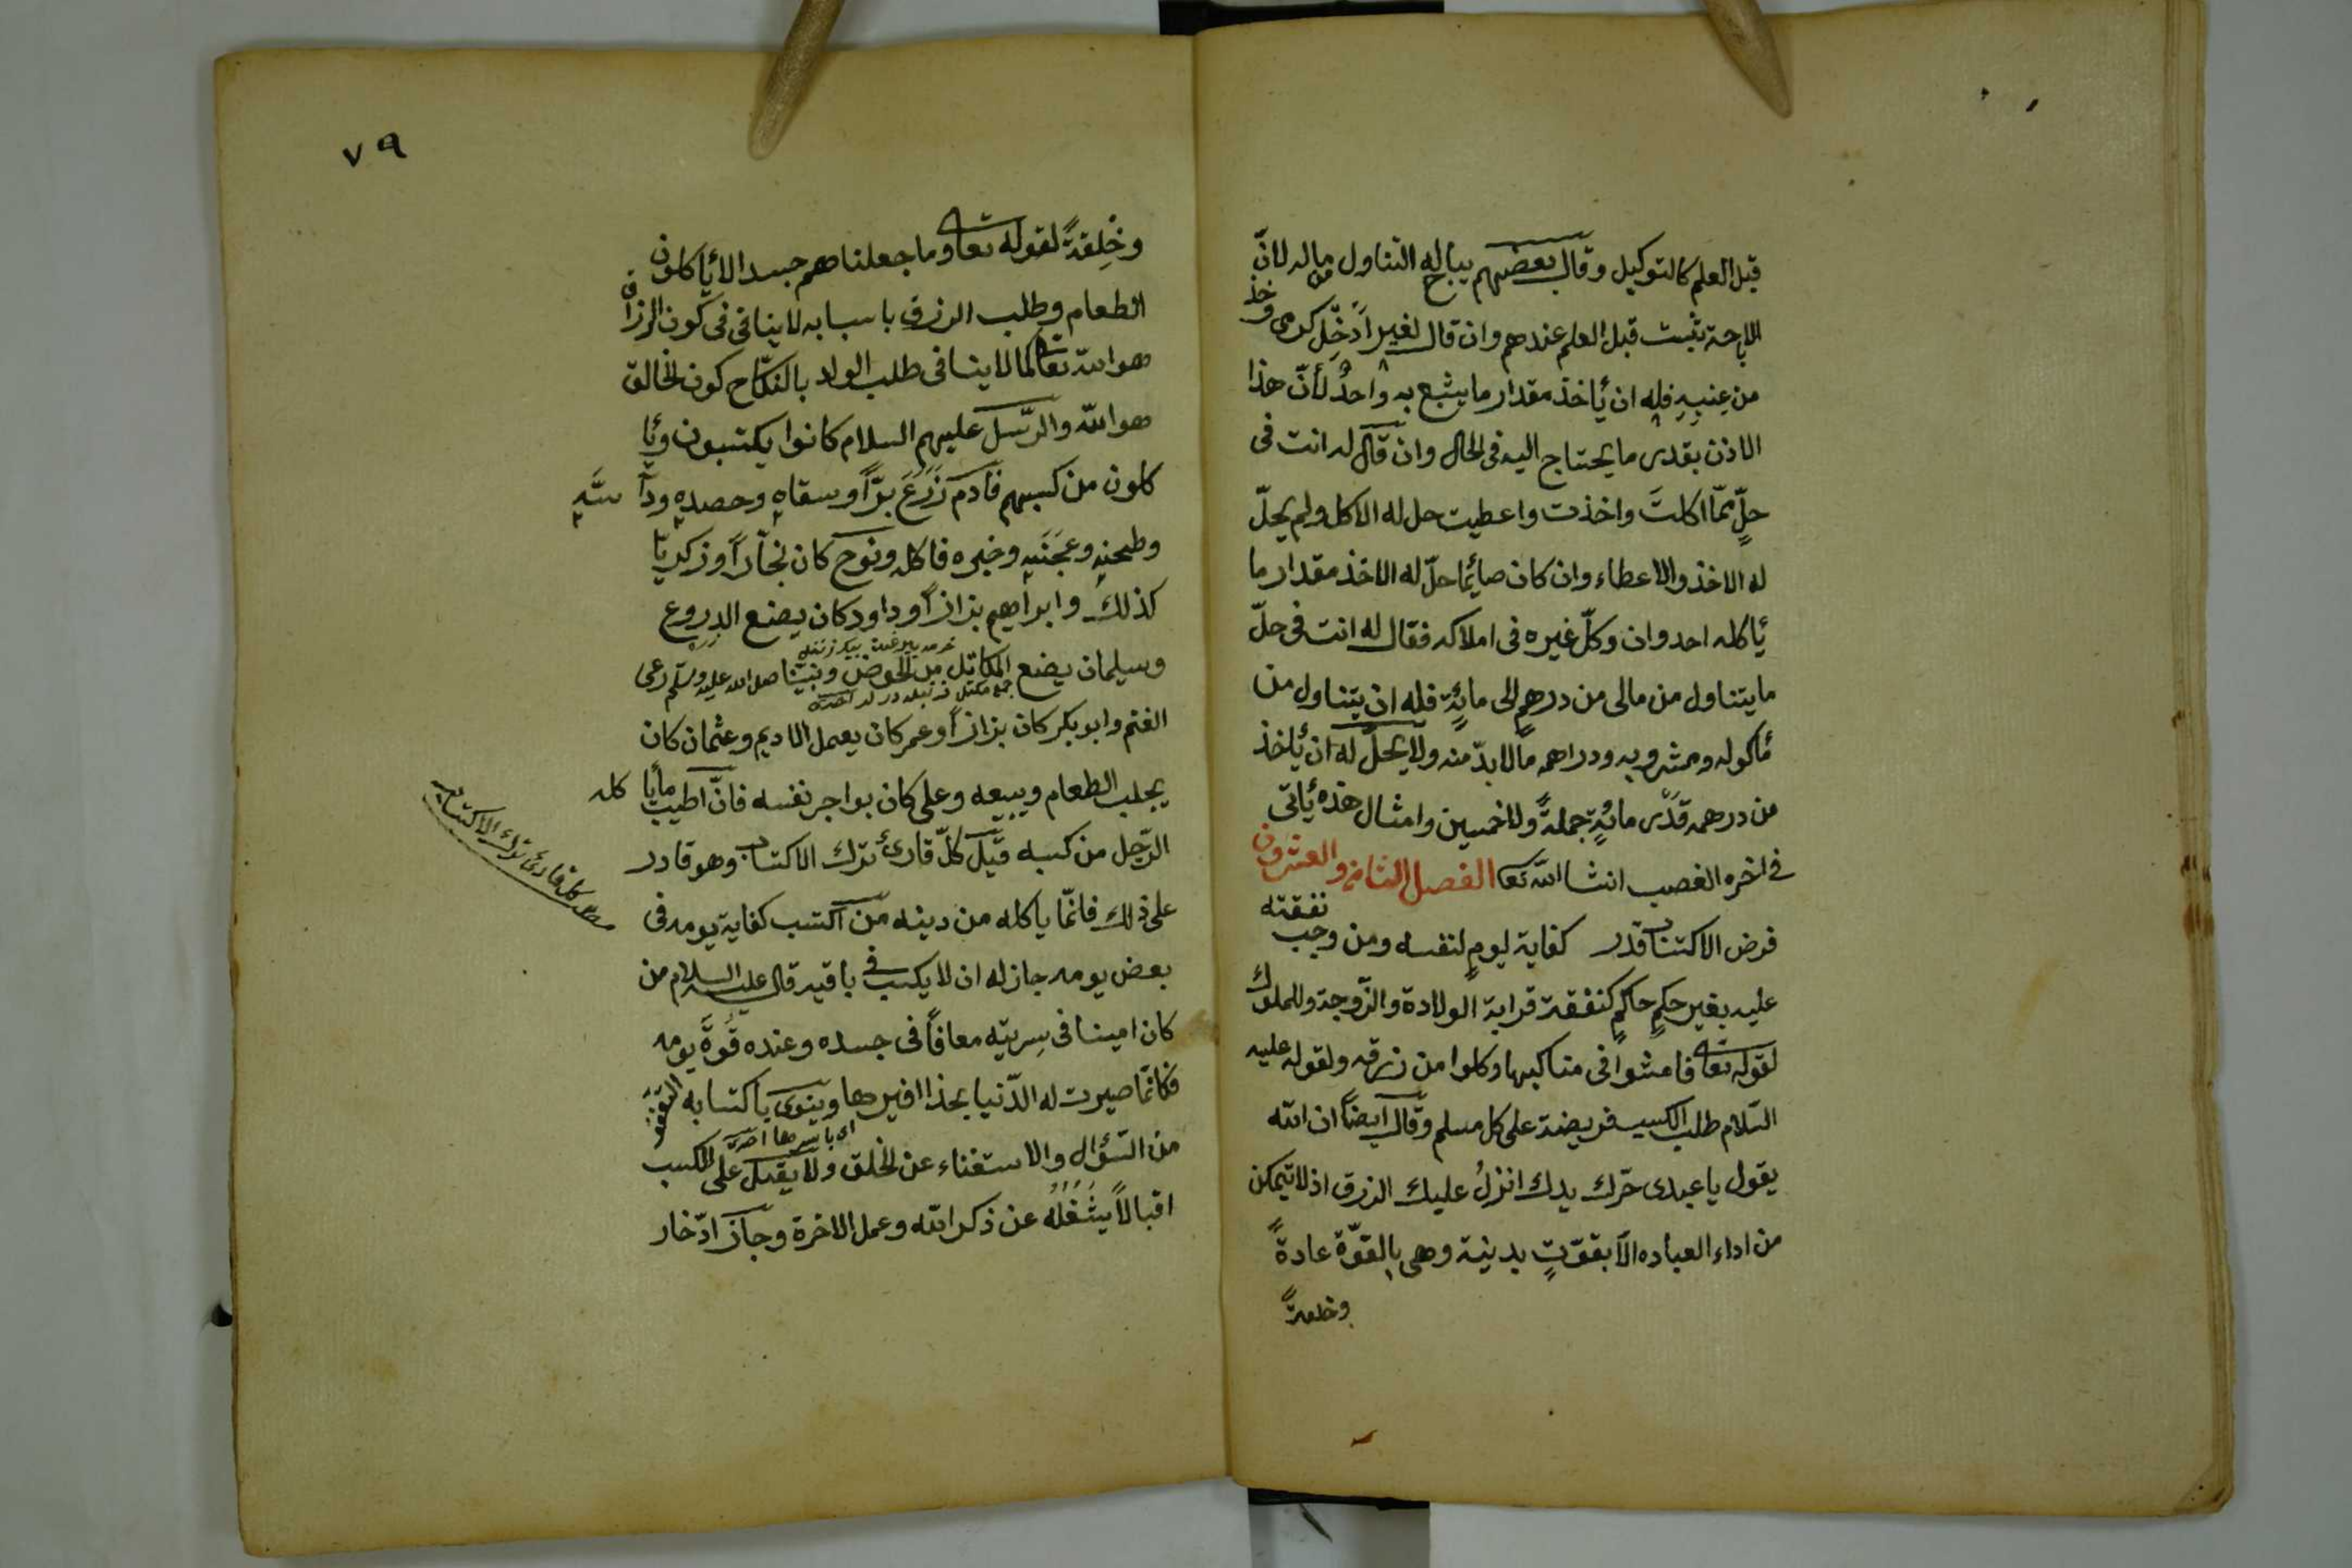 قبل العلم كالتوكيل وقال بعضهم يباح له التناول من ماله لان
الاباحة تثبت قبل العلم عندهم وان قال لغير ادخل كرمى وخذ
من عنبه فله ان يأخذ مقدار ما يشبع به واحد لأن هذا
الاذن بقدر ما يحتاج اليه فى الحال وان قال له انت فى
حل مما اكلت واخذت واعطيت حل له الاكل ولم يحل
له الاخذ والاعطاء وان كان صائما حل له الاخذ مقدار ما
يأكله احد وان وكل غيره فى املاكه فقال له انت فى حل
ما يتناول من مالى من درهم الى مائة فله ان يتناول من
مأكوله ومشروبه ودراهمه مالا بد منه ولا يحل له ان يأخذ
من درهمه قدر مائة جملة ولا خمسين وامثال هذه يأتى
فى اخره الغصب انشا الله تعا الفصل الثامن والعشرون
فرض الاكتساب قدر كفاية ليوم لنفسه ومن وجب نفقته
عليه بغير حكم حاكم كنفقة قرابة الولادة والزوجة والمملوك
لقوله تعا فامشوا فى مناكبها وكلوا من رزقه ولقوله عليه
السلام طلب الكسب فريضة على كل مسلم وقال ايضا ان الله
يقول يا عبدى حرك يدك انزل عليك الرزق اذ لا تتمكن
من اداء العباده الا بقوت بدنية وهى بالقوة عادة
وخلقة
٧٩
وخلقة لقوله تعا وما جعلناهم جسدا لا يأكلون
الطعام وطلب الرزق باسبابه لا ينافى فى كون الرزاق
هو الله تعا كما لا ينافى طلب الولد بالنكاح كون الخالق
هو الله والرسل عليهم السلام كانوا يكتسبون ويأ
كلون من كسبهم فادم زرع برا وسقاه وحصده ودا سه
وطحنه وعجنه وخبره فاكله ونوح كان نجارا وزكريا
كذلك وابراهيم بزازا وداود كان يصنع الدروع
وسليمان يصنع المكاتل من الخوص ونبينا صلى الله عليه وسلم رعى
جمع مكتل
الغنم وابو بكر كان بزازا وعمر كان يعمل الاديم وعثمان كان
يجلب الطعام ويبيعه وعلى كان يواجر نفسه فان اطيب ما يأ كله
الرجل من كسبه قيل كل قارئ ترك الاكتساب وهو قادر
كل قارئ ترك الاكتساب
على ذلك فانما ياكله من دينه من اكتسب كفاية يومه فى
بعض يومه جاز له ان لا يكسب فى باقيه قال عليه السلام من
كان امينا فى سربته معافا فى جسده وعنده قوة يومه
فكانما صيرت له الدنيا بحذا افيرها وينوى باكتسابه التعفف
اى باسرها
من السؤال والاستغناء عن الخلق ولا يقبل على الكسب
اقبالا يشغله عن ذكر الله وعمل الاخرة وجاز ادخار